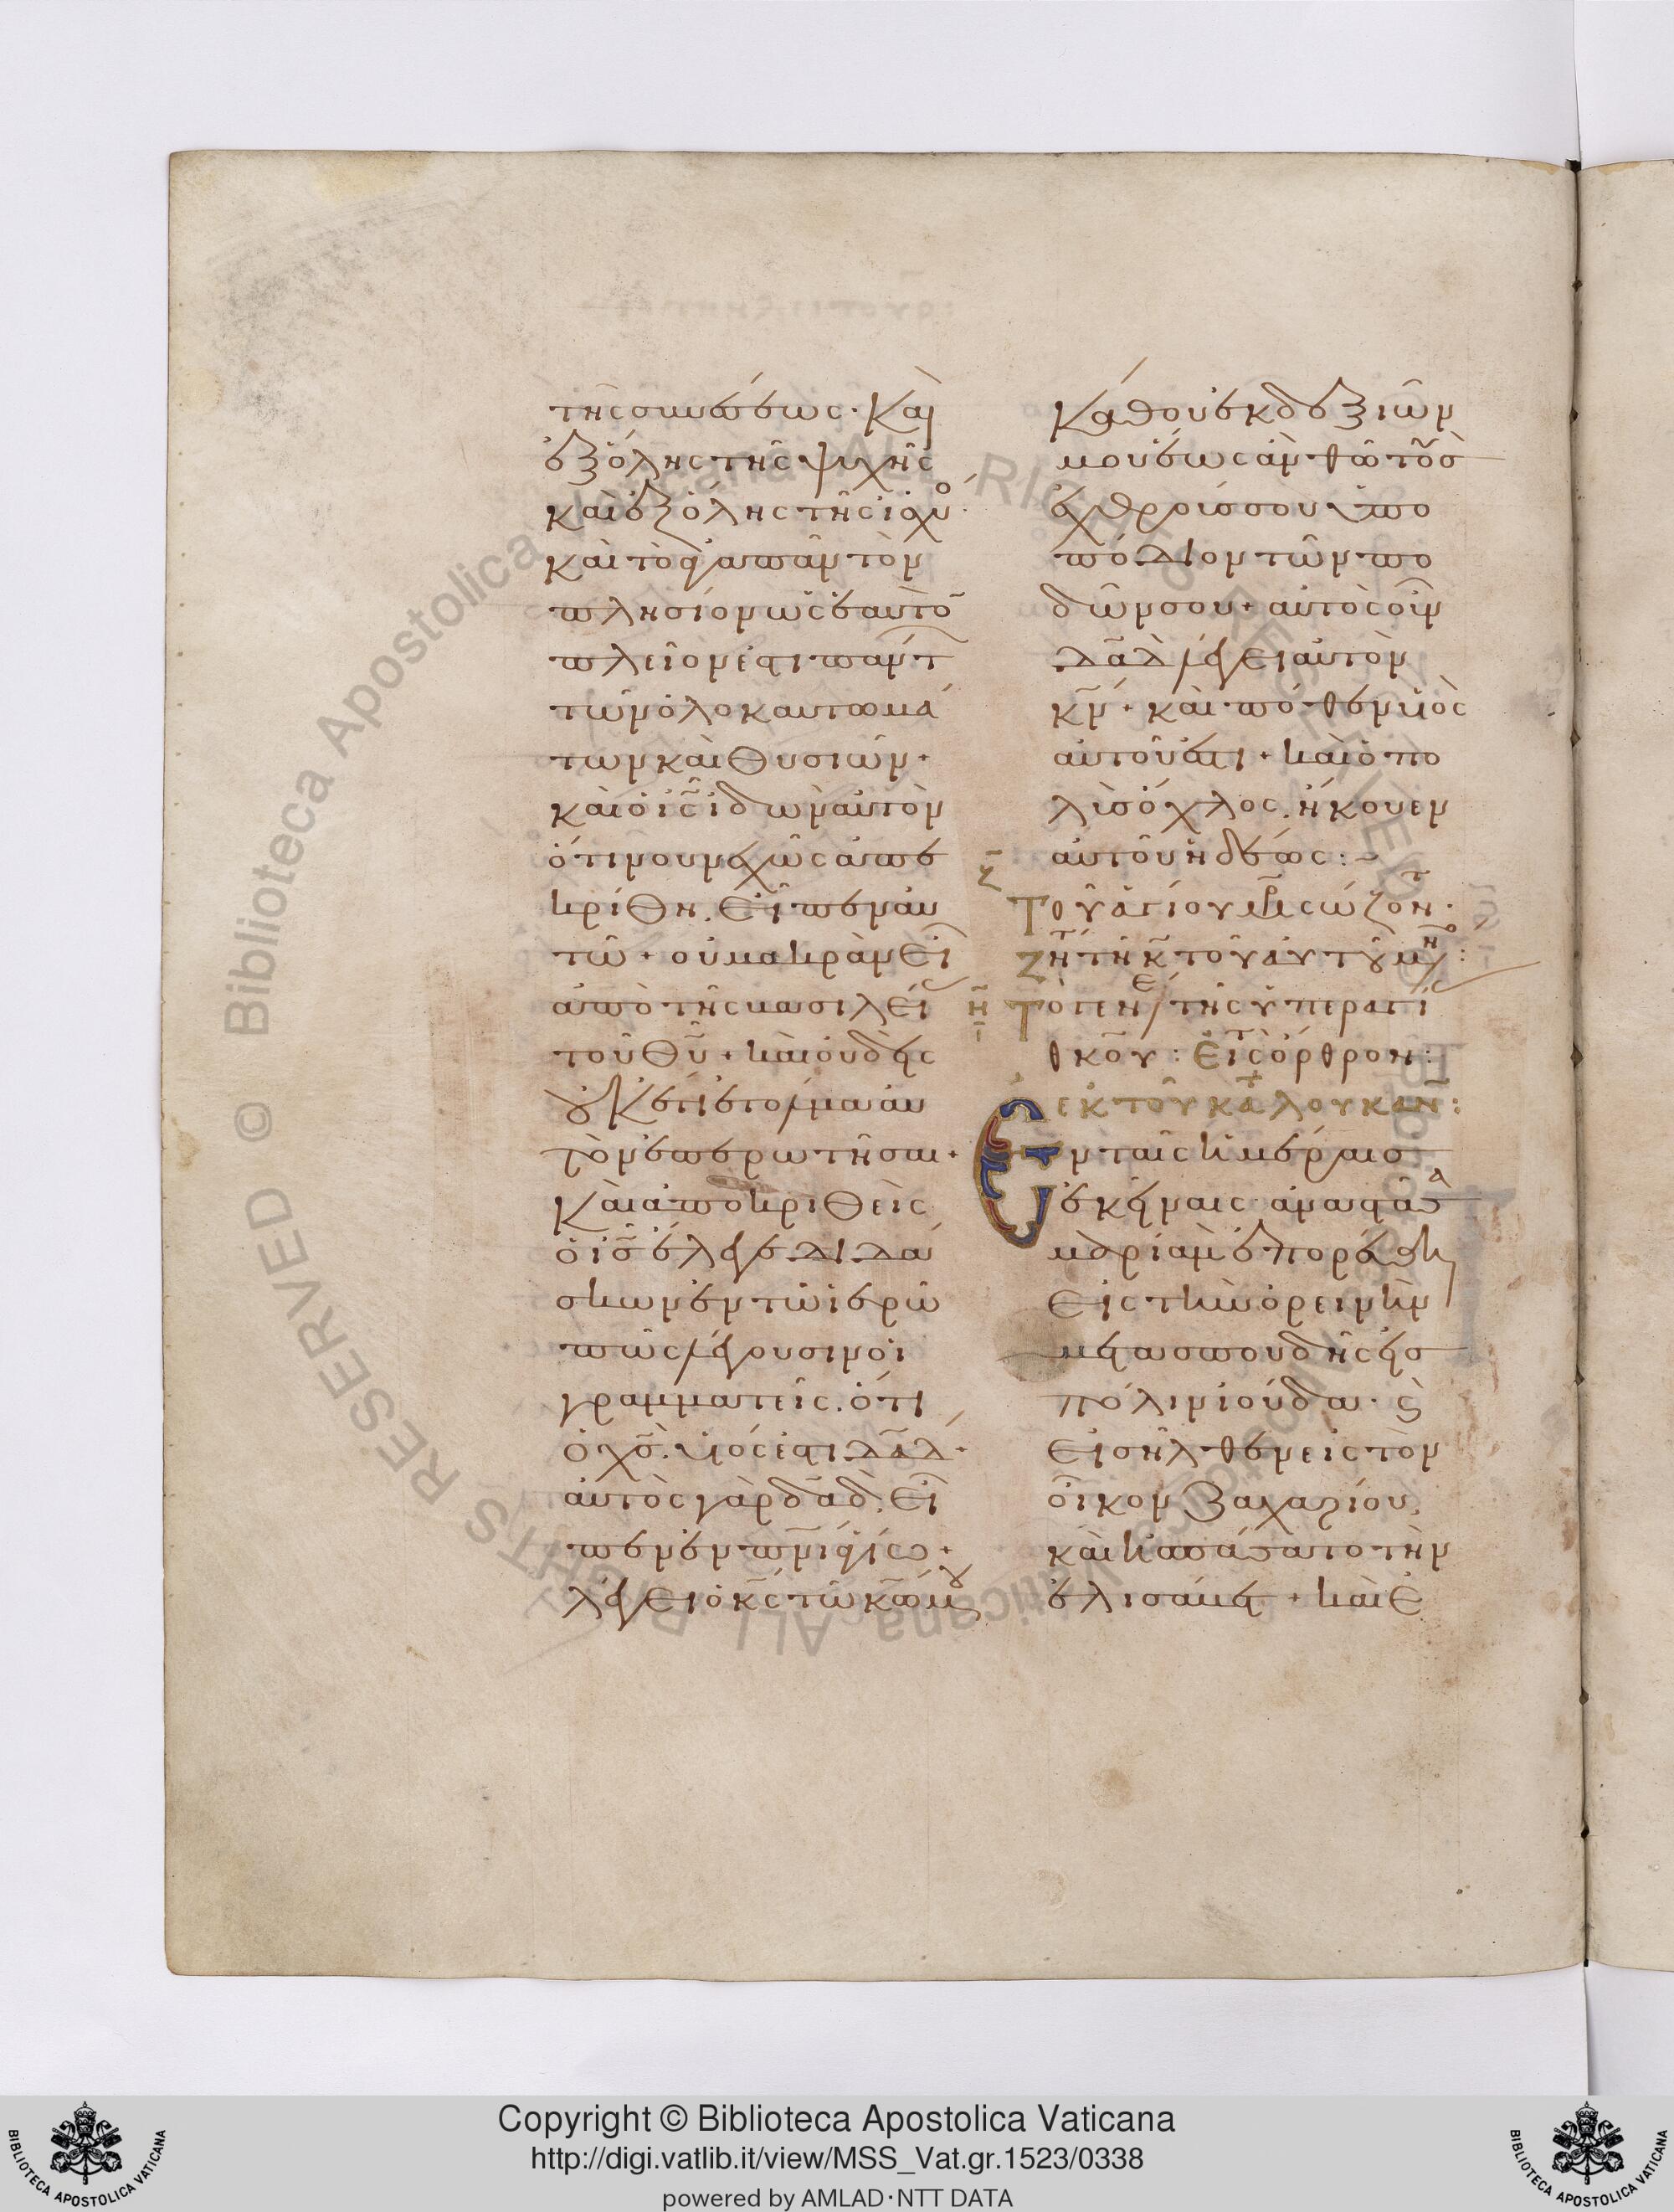 τῆς συνέσεως· Καὶ
ἐξ ὅλης τῆς ψυχῆς
καὶ ἐξ ὅλης τῆς ἰσχύο·
καὶ τὸ ἀγαπᾶν τὸν
πλησίον ὡς ἑαυτὸ
πλεῖόν ἐστι πάντ
τῶν ὁλοκαυτωμά
των καὶ θυσιῶν·
καὶ ὁ ις ἰδὼν αὐτὸν
ὅτι νουνεχῶς ἀπε
κρίθη. εἶπεν αὐ
τῶ· οὐ μακρὰν εἶ
ἀπὸ τῆς βασιλεί
τοῦ θυ· καὶ οὐδεὶς
οὐκ ἔτι ἐτόλμα αὐ
τὸν ἐπερωτῆσαι·
Καὶ ἀποκριθεὶς
ὁ ις ἔλεγε διδά
σκων ἐν τῶ ἱερῶ
πῶς λέγουσιν οἱ
γραμματεῖς. ὅτι
ὁ χς. υἱός ἐστι δαδ·
αὐτὸς γὰρ δαδ. εἶ
πεν ἐν πνι ἁγίω·
λέγει ὁ κς τῶ κω μου
Κάθου ἐκ δεξιῶν
μου ἕως ἂν θῶ τοὺσ
ἐχθρούς σου ὑπο
πόδιον τῶν πο
δῶν σου· αὐτὸς οὖν
δαδ λέγει αὐτὸν
κν· καὶ πόθεν υἱὸς
αὐτοῦ ἐστι· καὶ ὁ πο
λὺς ὄχλος. ἤκουεν
αὐτοῦ ἡδέως:
ζ
Τοῦ ἁγίου μρ σώζον·
ζητ τῆ κ τοῦ αὐτοῦ μην:
η Τὸ γενέ τῆς ὑπεραγί
θκου: Εἰς τὸ ὄρθρον:
ἐκ τοῦ κατ λουκαν:
Ἐν ταῖς ἡμέραισ
ἐκείναις ἀναστᾶσα
μαριὰμ ἐπορεύθη
εἰς τὴν ὀρεινὴν
μετὰ σπουδῆς εἰσ
πόλιν ἰούδα· ϛ
εἰσῆλθεν εἰς τὸν
οἶκον Ζαχαρίου.
καὶ ἠσπάσατο τὴν
ἐλισάβετ· καὶ ἐ
Copyright © Biblioteca Apostolica Vaticana
http://digi.vatlib.it/view/MSS_Vat.gr.1523/0338
powered by AMLAD·NTT DATA
BIBLIOTECA APOSTOLICA VATICANA
BIBLIOTECA APOSTOLICA VATICANA
© Biblioteca Apostolica Vaticana ALL RIGHTS RESERVED